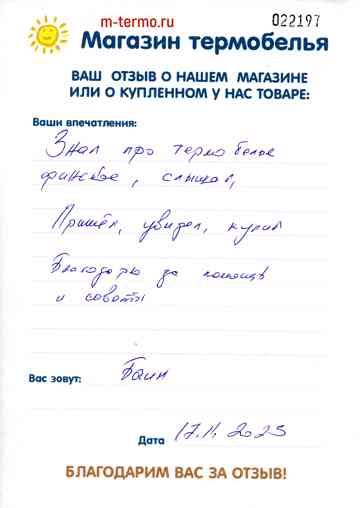 m-termo.ru
022197
Магазин термобелья
ВАШ ОТЗЫВ О НАШЕМ МАГАЗИНЕ
ИЛИ О КУПЛЕННОМ У НАС ТОВАРЕ:
Ваши впечатления:
Знал про термобелье
финское, слышал,
Пришёл, увидел, купил
Благодарю за помощь
и советы
Вас зовут:
Дата 17.11.2023
БЛАГОДАРИМ ВАС ЗА ОТЗЫВ!